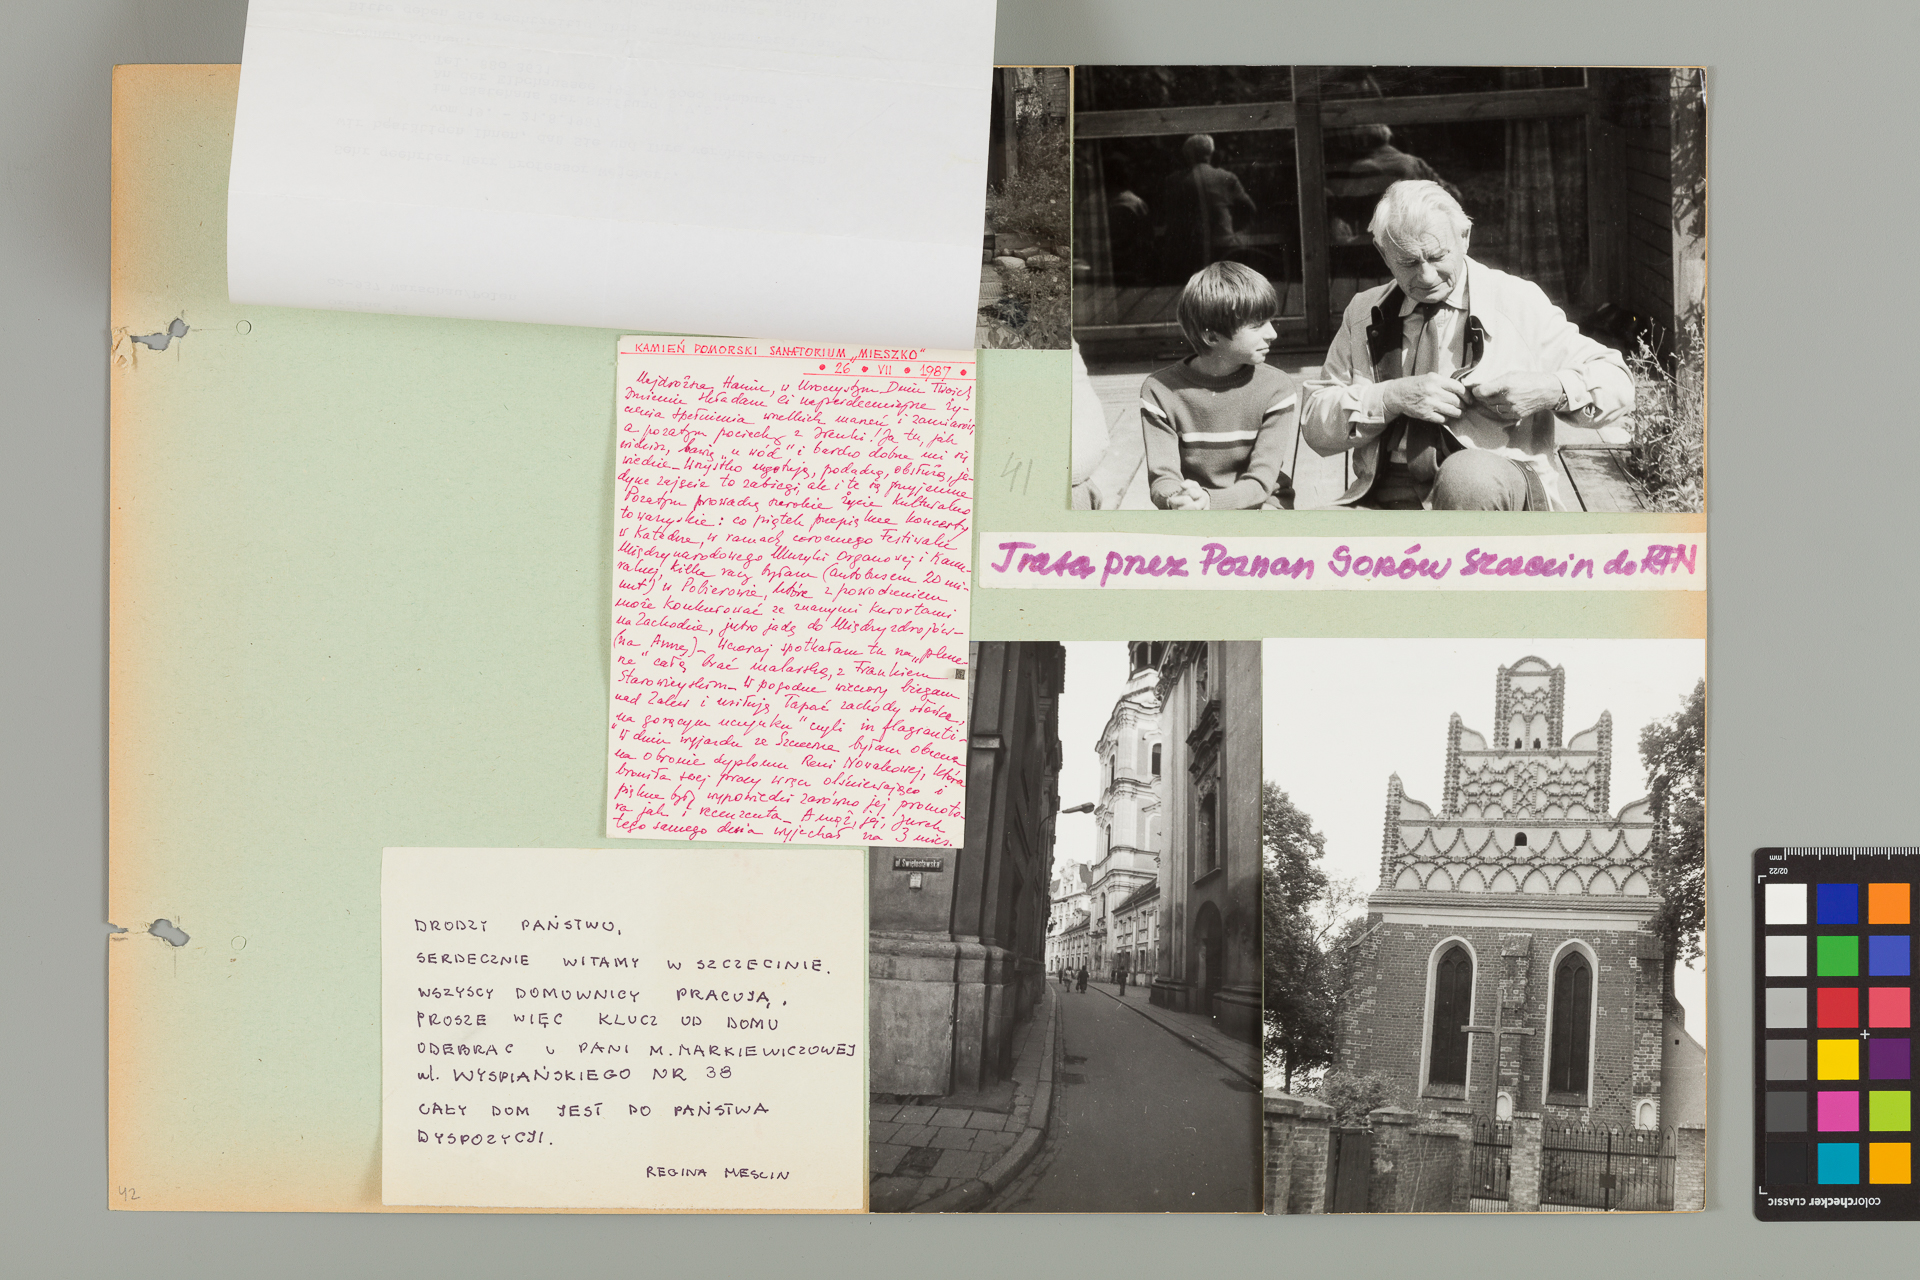 KAMIEŃ POMORSKI SANATORIUM „MIESZKO"
• 26 • VII • 1987 •
Najdroższa Haniu, w Uroczystym Dniu Twoich
Imienin składam Ci najserdeczniejsze ży-
czenia spełnienia wszelkich marzeń i zamiarów,
a pozatym pociechy z Irenki! Ja tu, jak
widzisz, bawię „u wód" i bardzo dobrze mi się
wiedzie_ Wszystko ugotują, podadzą, obsłużą, je-
dyne zajęcie to zabiegi, ale i te są przyjemne
Pozatym prowadzę szerokie życie kulturalno
towarzyskie: co piątek przepiękne koncerty
w Katedrze, w ramach corocznego Festiwalu
Międzynarodowego Muzyki Organowej i Kame-
ralnej, kilka razy byłam (autobusem 20 mi-
nut) w Pobierowie, które z powodzeniem
może konkurować ze znanymi kurortami
na Zachodzie, jutro jadę do Międzyzdrojów_
(na Annę)_ Wczoraj spotkałam tu na „plene-
rze" całą brać malarską, z Frankiem
Starowieyskim_ W pogodne wieczory biegam
nad Zalew i usiłuję łapać zachody słońca,
„na gorącym uczynku" czyli in flagranti_
W dniu wyjazdu ze Szczecina byłam obecna
na obronie dyplomu Reni Nowakowej, która
broniła swej pracy wręcz olśniewająco i
piękne były wypowiedzi zarówno jej promoto-
ra jak i recenzenta_ A mąż jej, Jurek
tego samego dnia wyjechał na 3 mies.
41
Trasa przez Poznań Gorów Szczecin do RFN
ul. Świętosławska
DRODZY PAŃSTWO,
SERDECZNIE WITAMY W SZCZECINIE.
WSZYSCY DOMOWNICY PRACUJĄ,
PROSZE WIĘC KLUCZ OD DOMU
ODEBRAC U PANI M. MARKIEWICZOWEJ
ul. WYSPIAŃSKIEGO NR 38
CAŁY DOM JEST DO PAŃSTWA
DYSPOZYCJI.
REGINA MESCIN
42
mm
02/22
colorchecker CLASSIC